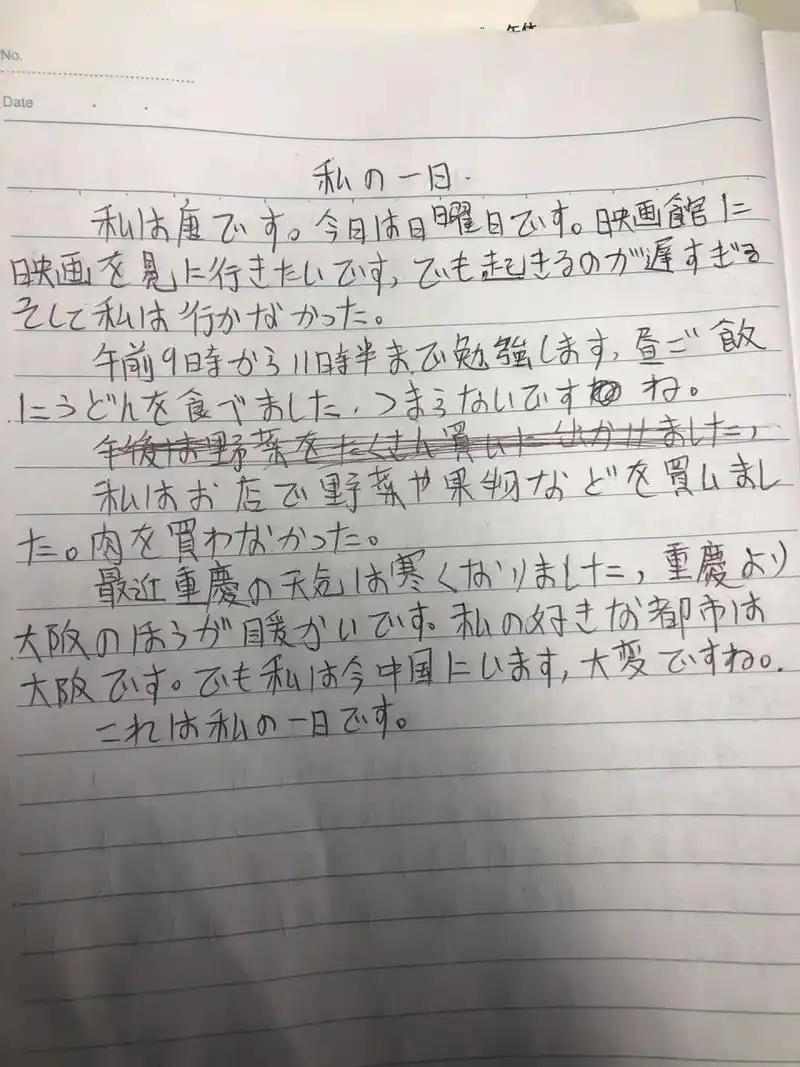 No.
Date
私の一日.
私は唐です。今日は日曜日です。映画館に
映画を見に行きたいです,でも起きるのが遅すぎる
そして私は行かなかった。
午前9時から11時半まで勉強します,昼ご飯
にうどんを食べました,つまらないです ね。
午後は野菜をたくさん買い
ました,
私はお店で野菜や果物などを買いまし
た。肉を買わなかった。
最近重慶の天気は寒くなりました,重慶より
大阪のほうが暖かいです。私の好きな都市は
大阪です。でも私は今中国にいます,大変ですね。
これは私の一日です。